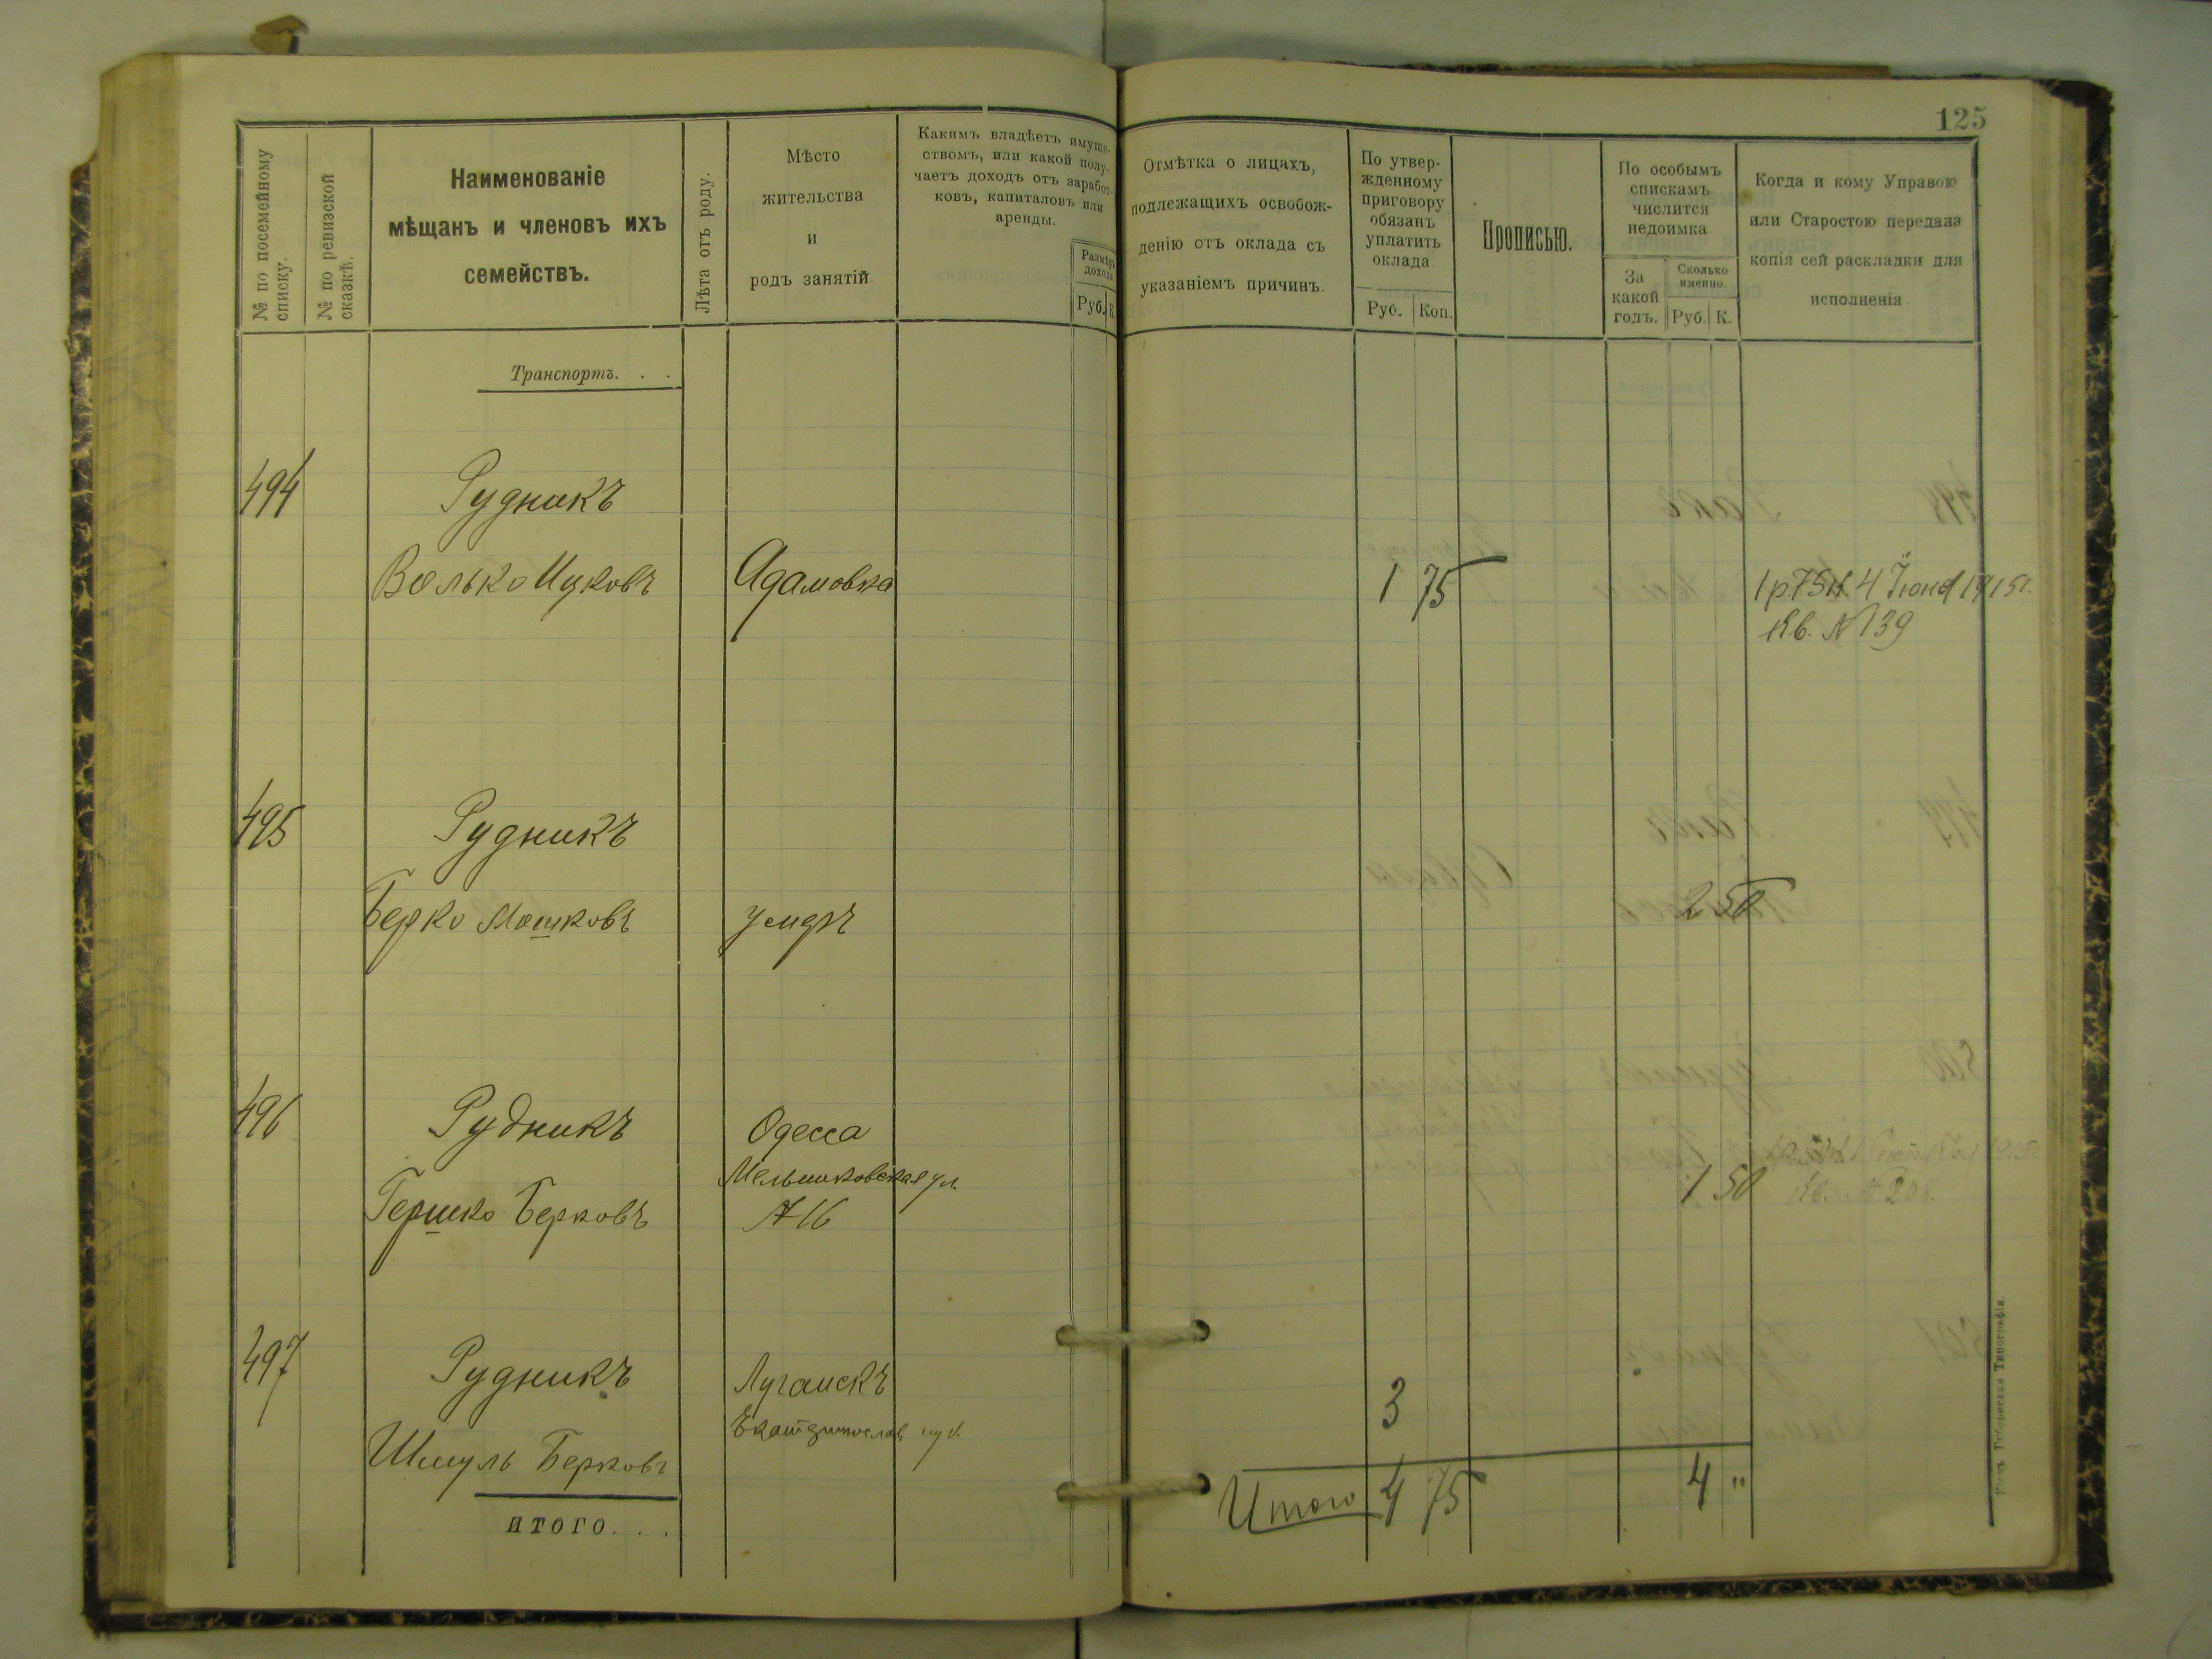 125
№ по посемейному списку.
№ по ревизской сказкѣ.
Наименованіе
мѣщанъ и членовъ ихъ
семействъ.
Лѣта отъ роду.
Мѣсто
жительства
и
родъ занятій.
Какимъ владѣетъ имуще-
ствомъ, или какой полу-
чаетъ доходъ отъ заработ-
ковъ, капиталовъ или
аренды.
Размѣръ
дохода
Руб. К.
Отмѣтка о лицахъ,
подлежащихъ освобож-
денію отъ оклада съ
указаніемъ причинъ.
По утвер-
жденному
приговору
обязанъ
уплатить
оклада.
Руб. Коп.
Прописью.
По особымъ
спискамъ
числится
недоимка
За
какой
годъ.
Сколько
именно
Руб. К.
Когда и кому Управою
или Старостою передана
копія сей раскладки для
исполненія
Транспортъ. . .
494 Рудникъ
Волько Ицковъ Адамовка 1 75 1р.75к. 4 Іюня 1915г.
Кв. № 139
495 Рудникъ
Берко Мошковъ умеръ 2 50
496 Рудникъ Одесса
Мельниковская ул.
Гершко Берковъ № 16 1 50 Кв. № 206.
497 Рудникъ Луганскъ 3
Екатеринослав. губ.
Шмуль Берковъ
ИТОГО. . .
Итого 4 75 4 "